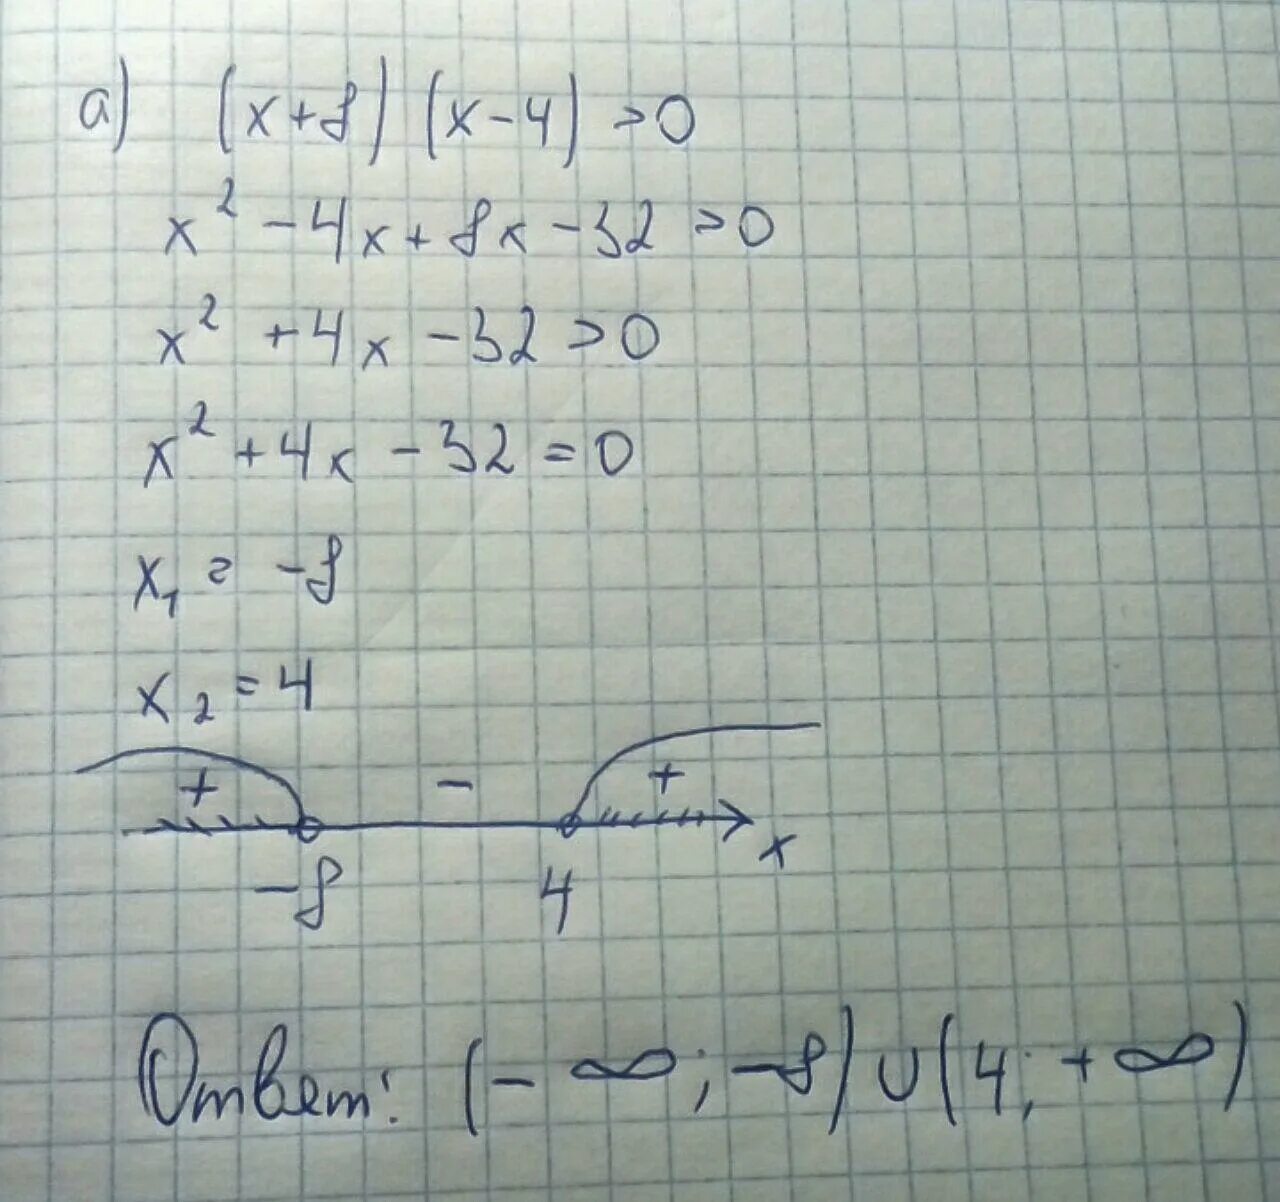 а) (x+8) (x-4) >0
x² -4x+8x-32>0
x² +4x-32>0
x² +4x-32=0
x₁ = -8
x₂ = 4
+ - +
-8 4 x
Ответ: (-∞; -8)∪(4; +∞)